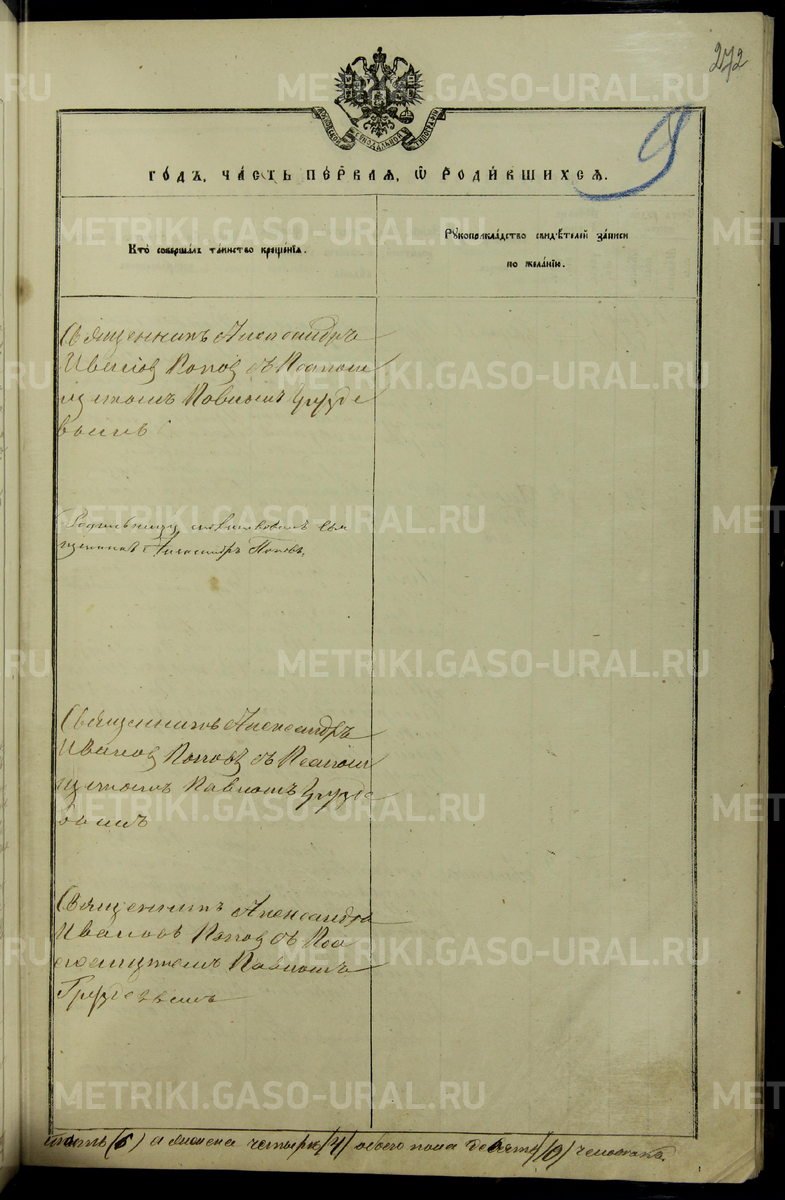 272
МОСКОВСКОЙ СИНОДАЛЬНОЙ ТИПОГРАФІИ
9
го́дъ, ча́сть пе́рваѧ, ѡ҆ роди́вшихсѧ.
Кто̀ соверша́лъ та́инство креще́нїѧ.
Рꙋкоприкла́дство свидѣ́телей за́писи
по жела́нїю.
Священникъ Александръ
Иванов Попов съ Псаломщикомъ
Павломъ Грузде
вымъ
Родильницу молитвовалъ Свя
щенникъ Александръ Поповъ.
Священникъ Александръ
Иванов Поповъ съ Псалом
щикомъ Павломъ Грузде
вымъ
Священникъ Александръ
Ивановъ Попов съ Пса
ломщикомъ Павломъ
Груздевымъ
а женска четыре /4/ обоего пола десять /10/ человекъ.
METRIKI.GASO-URAL.RU